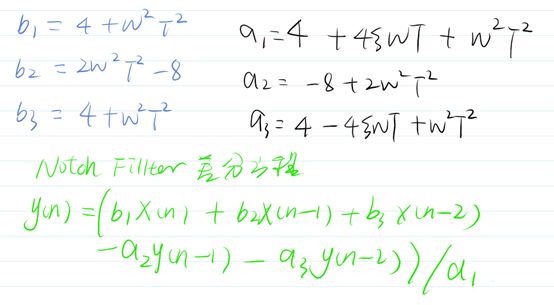 b₁ = 4 + w²T²
b₂ = 2w²T² - 8
b₃ = 4 + w²T²
a₁ = 4 + 4ξwT + w²T²
a₂ = -8 + 2w²T²
a₃ = 4 - 4ξwT + w²T²
Notch Fillter 差分方程
y(n) = (b₁x(n) + b₂x(n-1) + b₃x(n-2)
-a₂y(n-1) - a₃y(n-2))/a₁